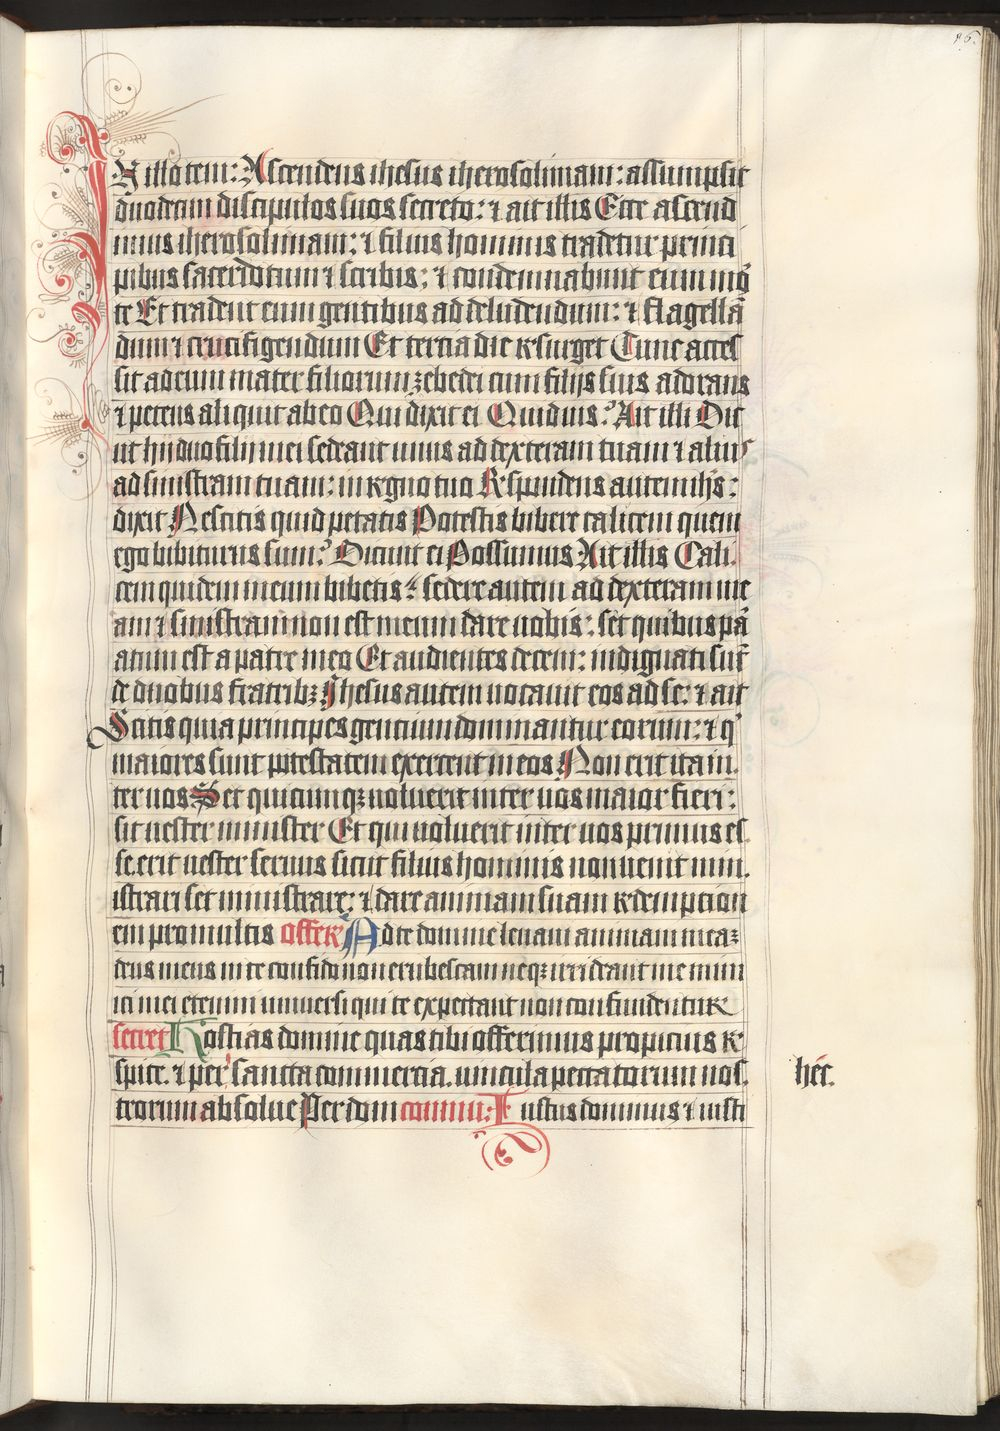 96.
IN illo tem: Ascendens ihesus iherosolimam: assumpsit
duodecim discipulos suos secreto: ⁊ ait illis Ecce ascend
imus iherosolimam: ⁊ filius hominis tradetur princi
pibus sacerdotum ⁊ scribis: ⁊ condemnabunt eum mor̄
te Et tradent eum gentibus ad deludendum: ⁊ flagellā
dum ⁊ crucifigendum Et tercia die resurget Tunc acces
sit ad eum mater filiorum zebedei cum filijs suis adorans
⁊ petens aliquit ab eo Qui dixit ei Quid uis? Ait illi Dic
ut hij duo filij mei sedeant unus ad dexteram tuam ⁊ alius
ad sinistram tuam: in regno tuo Respondens autem ihs̄:
dixit Nescitis quid petatis Potestis bibere calicem quem
ego bibiturus sum? Dicunt ei Possumus Ait illis Cali.
cem quidem meum bibetis: sedere autem ad dexteram me
am ⁊ sinistram non est meum dare uobis: set quibus pā
atum est a patre meo Et audientes decem: indignati sūt
de duobus fratribꝫ Ihesus autem uocauit eos ad se: ⁊ ait
Scitis quia principes gentium dominantur eorum: ⁊ q̄
maiores sunt potestatem exercent in eos Non erit ita in.
ter uos Set quicumqꝫ uoluerit inter uos maior fieri:
sit uester minister Et qui uoluerit inter uos primus es.
se erit uester seruus sicut filius hominis non uenit min.
istrari set ministrare: ⁊ dare animam suam redempcion
em pro multis offer Ad te domine leuaui animam meaꝫ
deus meus in te confido non erubescam neqꝫ irrideant me inim
ici mei etenim uniuersi qui te expectant non confundentur
secret Hostias domine quas tibi offerimus propicius re
spice. ⁊ per sancta commercia. uincula peccatorum nos. hec.
trorum absolue Per dom commu: Iustus dominus ⁊ iusti